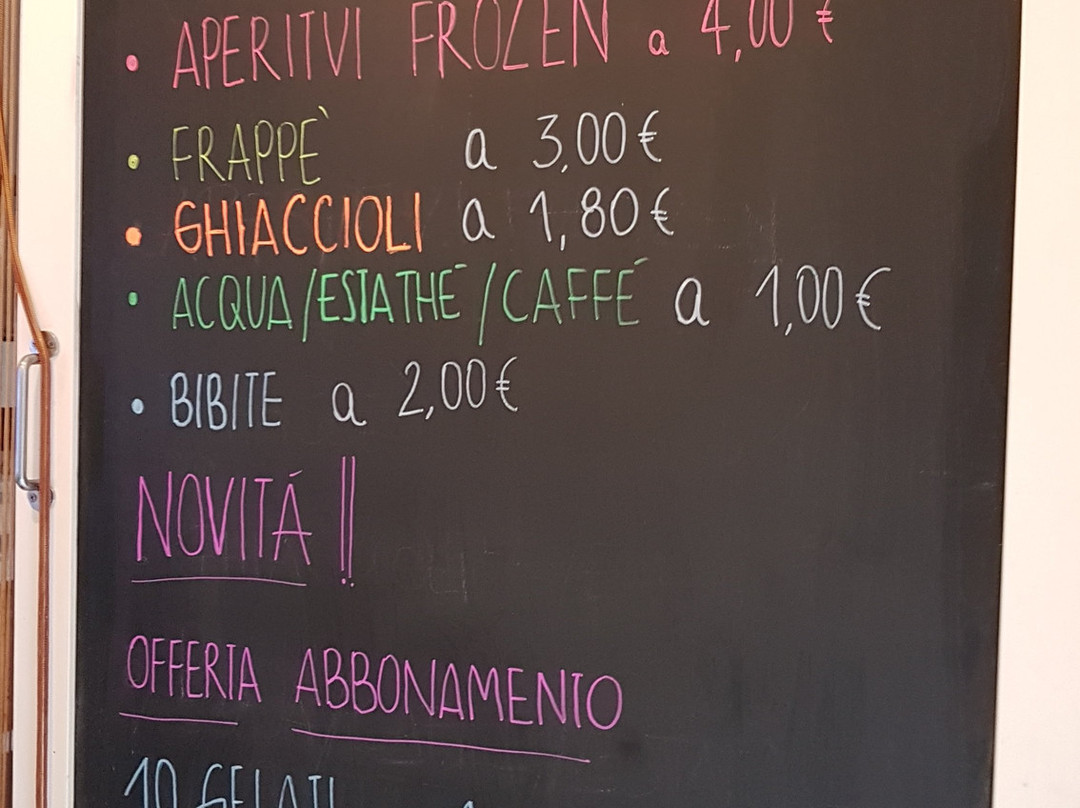 • APERITVI FROZEN a 4,00 €
• FRAPPÈ a 3,00 €
• GHIACCIOLI a 1,80 €
• ACQUA/ESTATHÉ/CAFFÉ a 1,00 €
• BIBITE a 2,00 €
NOVITÁ !!
OFFERTA ABBONAMENTO
10 GELATI